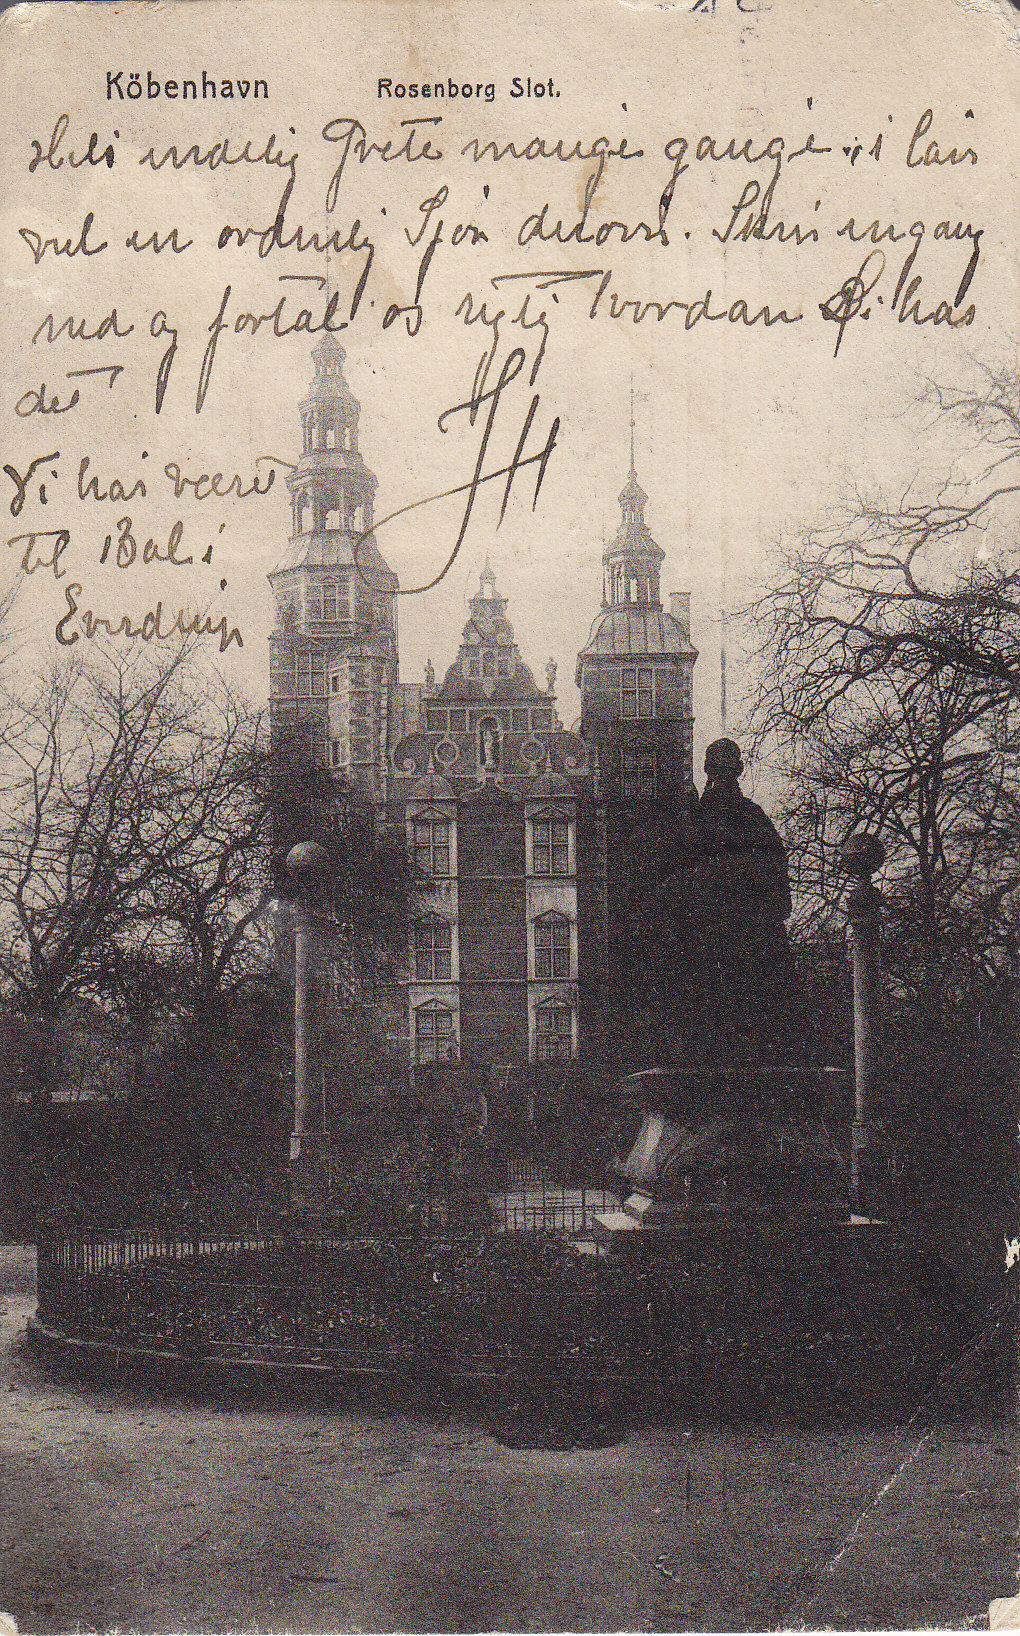 Köbenhavn Rosenborg Slot.
Hils endelig Grete mange gange. i
vel en ordenlig Sjov derovre. Skriv engang
ned og fortæl os rigtig hvordan Di har
det
Vi har været
til Bal i
Everdrup